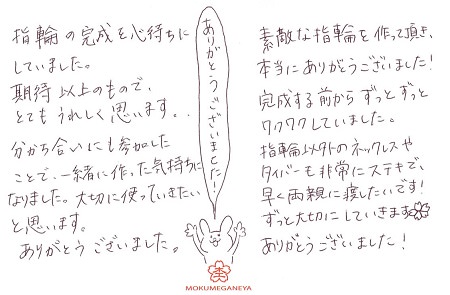 指輪の完成を心待ちに
していました。
期待以上のもので、
とてもうれしく思います。.
分かち合いにも参加した
ことで、一緒に作った気持ちに
なりました。大切に使っていきたい
と思います。
ありがとうございました。
ありがとうございました!
素敵な指輪を作って頂き、
本当にありがとうございました!
完成する前からずっとずっと
ワクワクしていました。
指輪以外のネックレスや
タイバーも非常にステキで、
早く両親に渡したいです!
ずっと大切にしていきます
ありがとうございました!
MOKUMEGANEYA